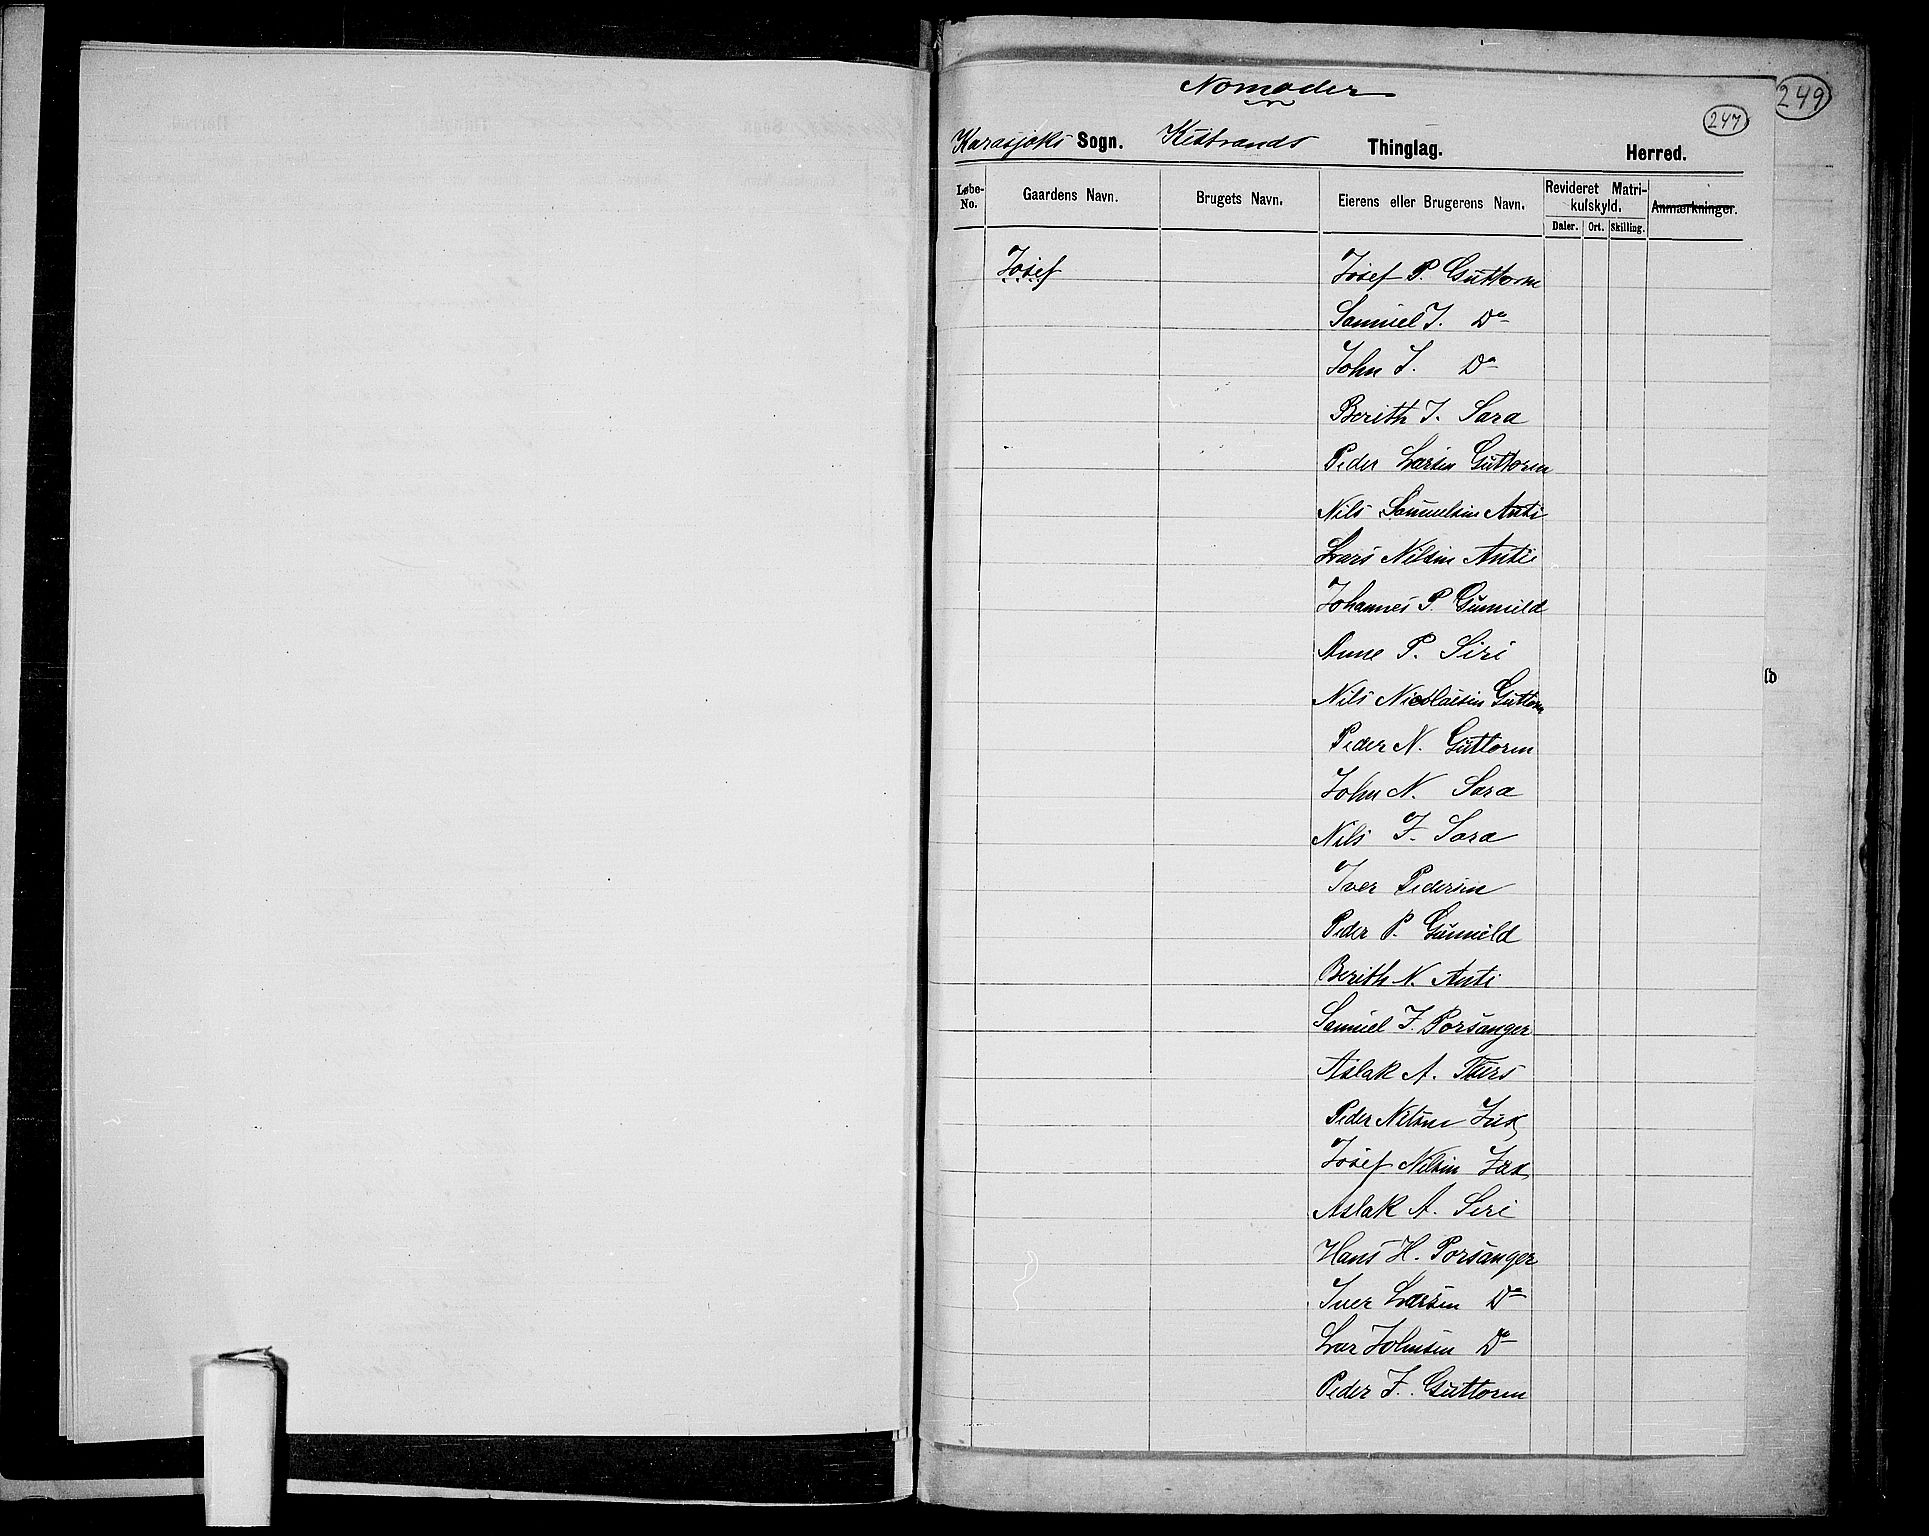 Nomader
249
247
Karasjoks Sogn. Kistrands Thinglag. Herred.
Løbe-No. Gaardens Navn. Brugets Navn. Eierens eller Brugerens Navn. Revideret Matrikulskyld. Anmærkninger.
Daler. Ort. Skilling.
Josef Josef P. Guttorm
Samuel J. Do
John J. Do
Berith J. Sara
Peder Larsen Guttorm
Nils Samuelsen Anti
Lars Nilsen Anti
Johannes P. Gunnild
Anne P. Siri
ld
Nils Nicolaisen Guttorm
Peder N. Guttorm
John N. Sara
Nils J. Sara
Iver Pedersen
Peder P. Gunnild
Berith N. Anti
Samuel J. Porsanger
Aslak A.
Peder Nilsen
Josef Nilsen
Aslak A. Siri
Hans H. Porsanger
Iver Larsen Do
Johnsen Do
Peder J. Guttorm